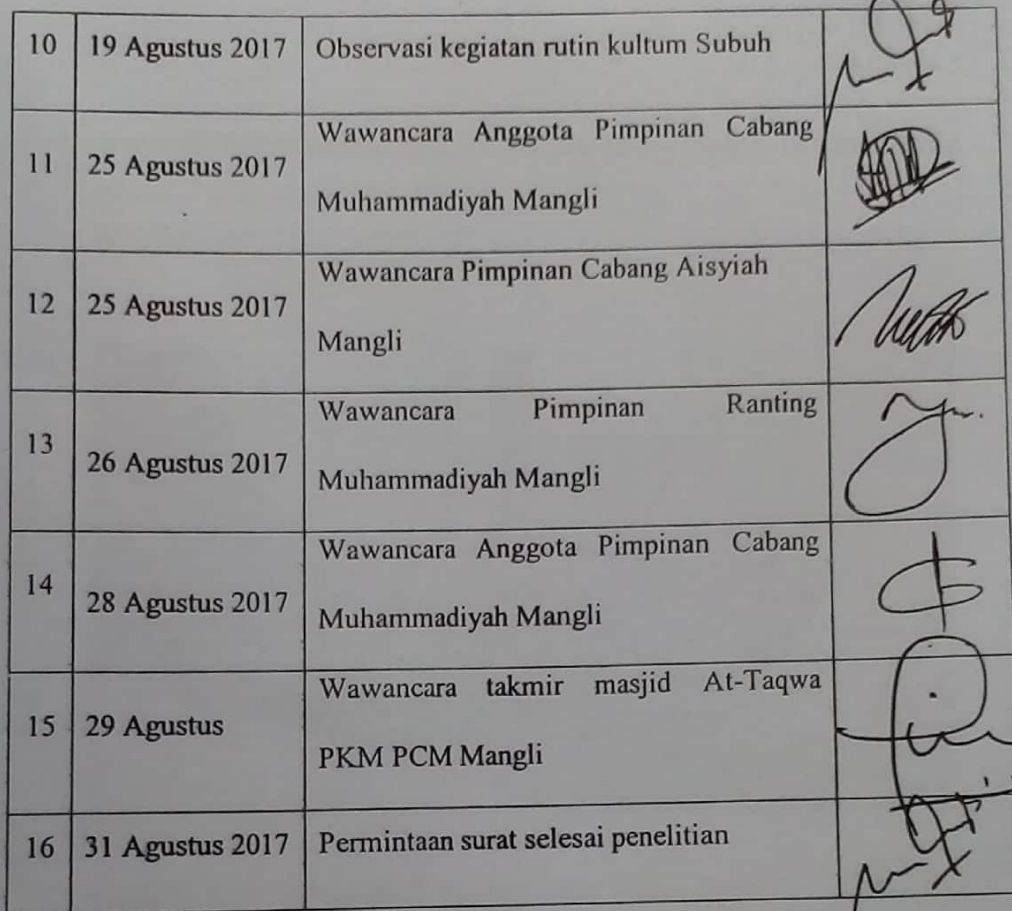 10 19 Agustus 2017 Observasi kegiatan rutin kultum Subuh
11 25 Agustus 2017 Wawancara Anggota Pimpinan Cabang
Muhammadiyah Mangli
12 25 Agustus 2017 Wawancara Pimpinan Cabang Aisyiah
Mangli
13 26 Agustus 2017 Wawancara Pimpinan Ranting
Muhammadiyah Mangli
14 28 Agustus 2017 Wawancara Anggota Pimpinan Cabang
Muhammadiyah Mangli
15 29 Agustus Wawancara takmir masjid At-Taqwa
PKM PCM Mangli
16 31 Agustus 2017 Permintaan surat selesai penelitian